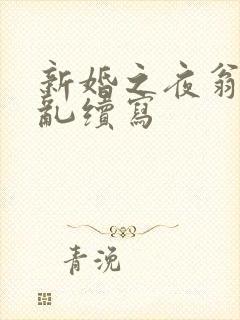 新婚之夜翁
亂續寫
青浼